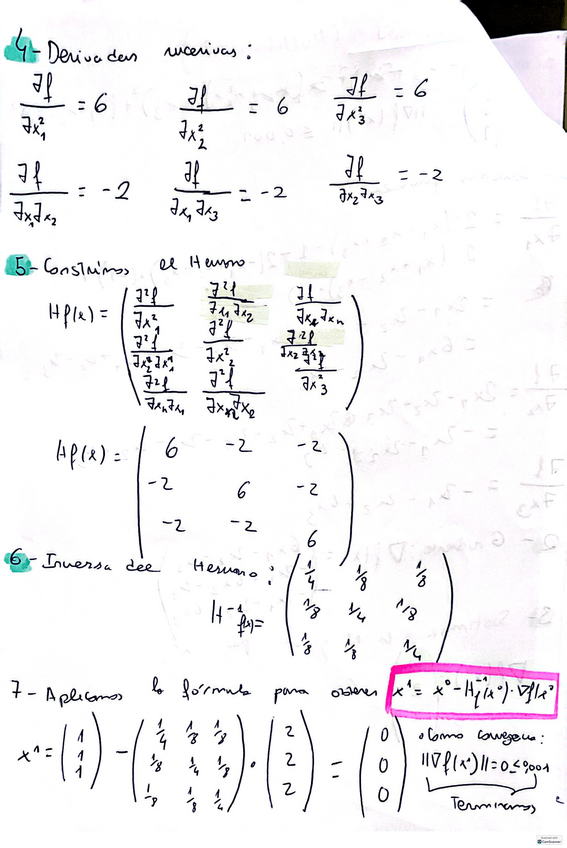 4- Derivadas sucesivas:
∂f/∂x₁² = 6 ∂f/∂x₂² = 6 ∂f/∂x₃² = 6
∂f/∂x₁∂x₂ = -2 ∂f/∂x₁∂x₃ = -2 ∂f/∂x₂∂x₃ = -2
5- Construimos el Hessiano
Hf(x) = ( ∂²f/∂x₁² ∂²f/∂x₁∂x₂ ∂f/∂x₁∂xₙ
∂²f/∂x₂∂x₁ ∂²f/∂x₂² ∂²f/∂x₂
∂²f/∂xₙ∂x₁ ∂²f/∂xₙ∂x₂ ∂²f/∂x₃² )
Hf(x) = ( 6 -2 -2
-2 6 -2
-2 -2 6 )
6- Inversa del Hessiano:
H⁻¹f(x) = ( 1/4 1/8 1/8
1/8 1/4 1/8
1/8 1/8 1/4 )
7- Aplicamos la fórmula para obtener x¹ = x⁰ - H⁻¹f(x⁰) · ∇f(x⁰
x¹ = ( 1 1 1 ) - ( 1/4 1/8 1/8 1/8 1/4 1/8 1/8 1/8 1/4 ) · ( 2 2 2 ) = ( 0 0 0 )
• Como converge:
||∇f(x¹)|| = 0 ≤ 0,001
Terminamos
CamScanner